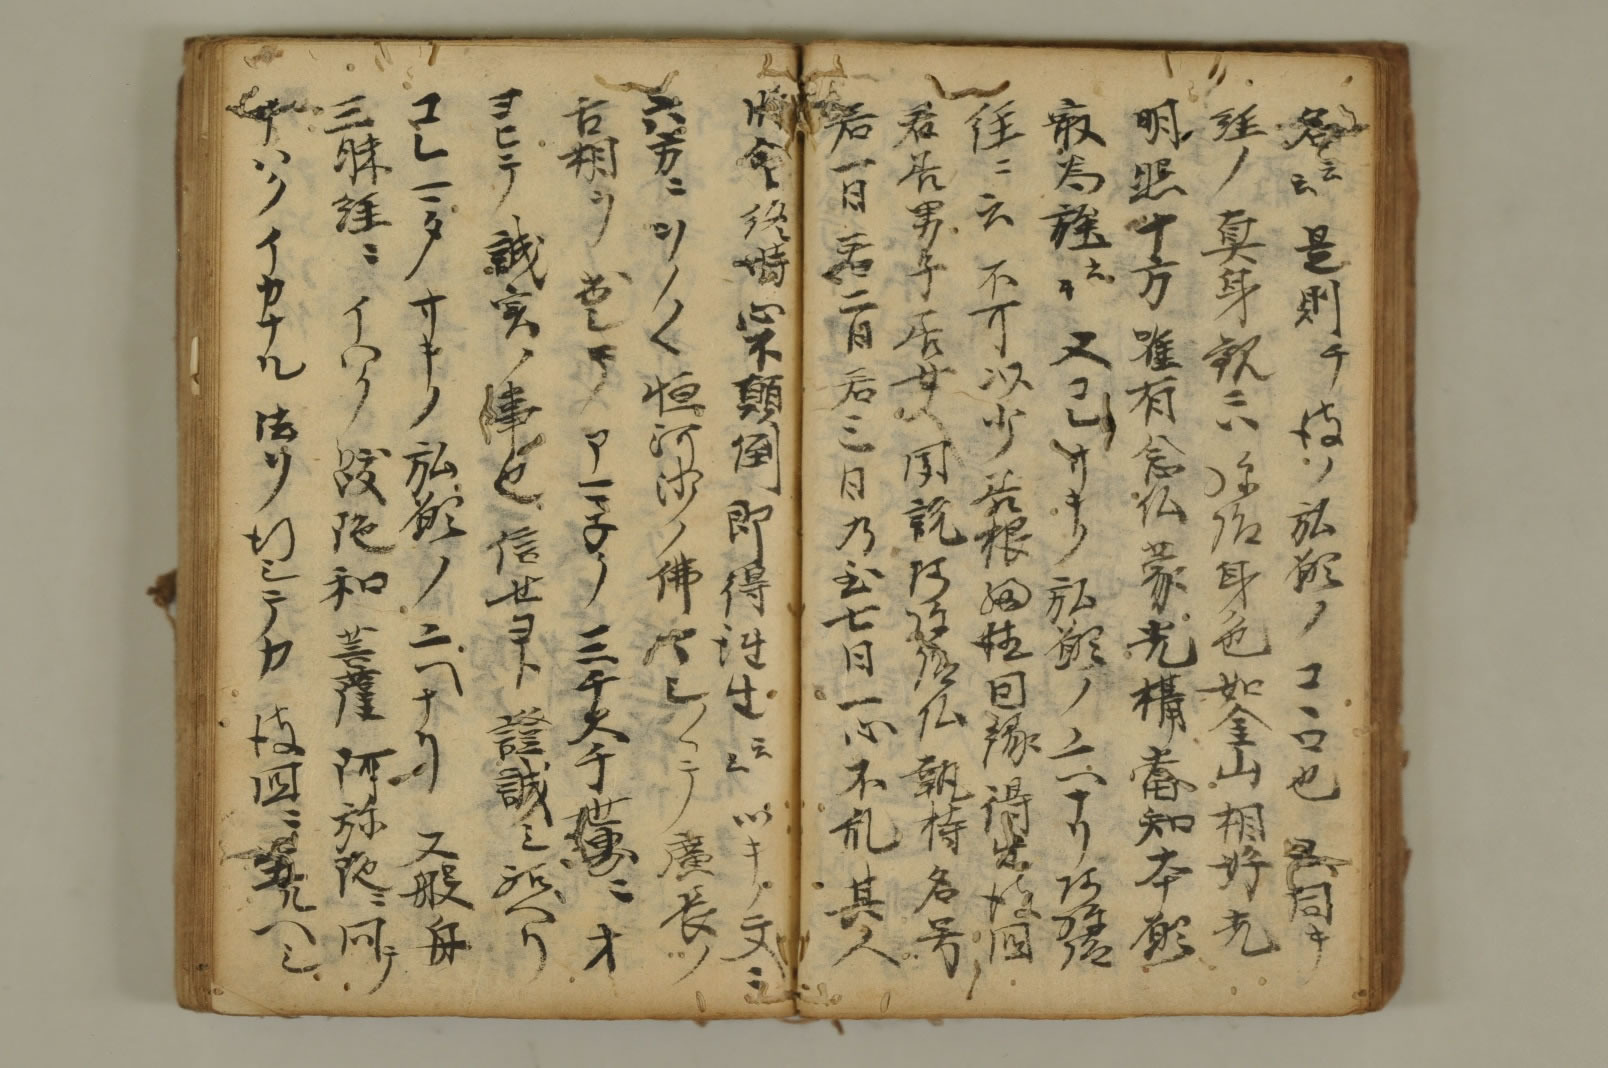 名云云 是則チ彼ノ弘願ノココロ也 又同キ
経ノ真身観ニハ 弥陀身色如金山相好光
明照十方唯有念仏蒙光摂當知本願
最為強云云 又コレオナキノ弘願ノ二ヘナリ阿弥陀
経ニ云 不可以少善根福徳因縁得生彼国
若善男子善女人聞説阿弥陀仏執持名号
若一日若二日若三日乃至七日一心不乱其人
臨命終時心不顛倒即得往生云云 ツキノ文ニ
六方ニヲノ〱恒河沙ノ佛マシ〱テ廣長ノ
舌相ヲ出シテアマ子ク三千大千世界ニオ
ヨヒテ誠実ノ事也信セヨト證誠シ給ヘリ
コレマタオキノ弘願ノ二ヘナリ 又般舟
三昧経ニイハク跋陀和菩薩阿弥陀ニ問テ
イハクイカナル法ヲ行シテカ彼国ニ生ルヘシ